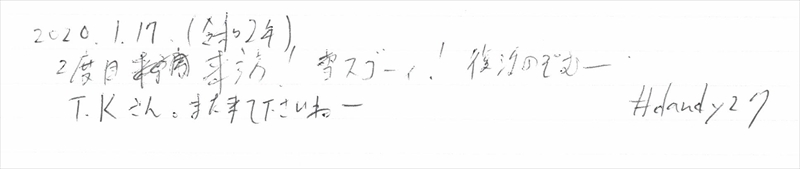 2020.1.17.(令和2年)
2度目 来訪! 雪スゴーイ! 復活のぞむー
T.Kさん。また来て下さいねー
#dandy27